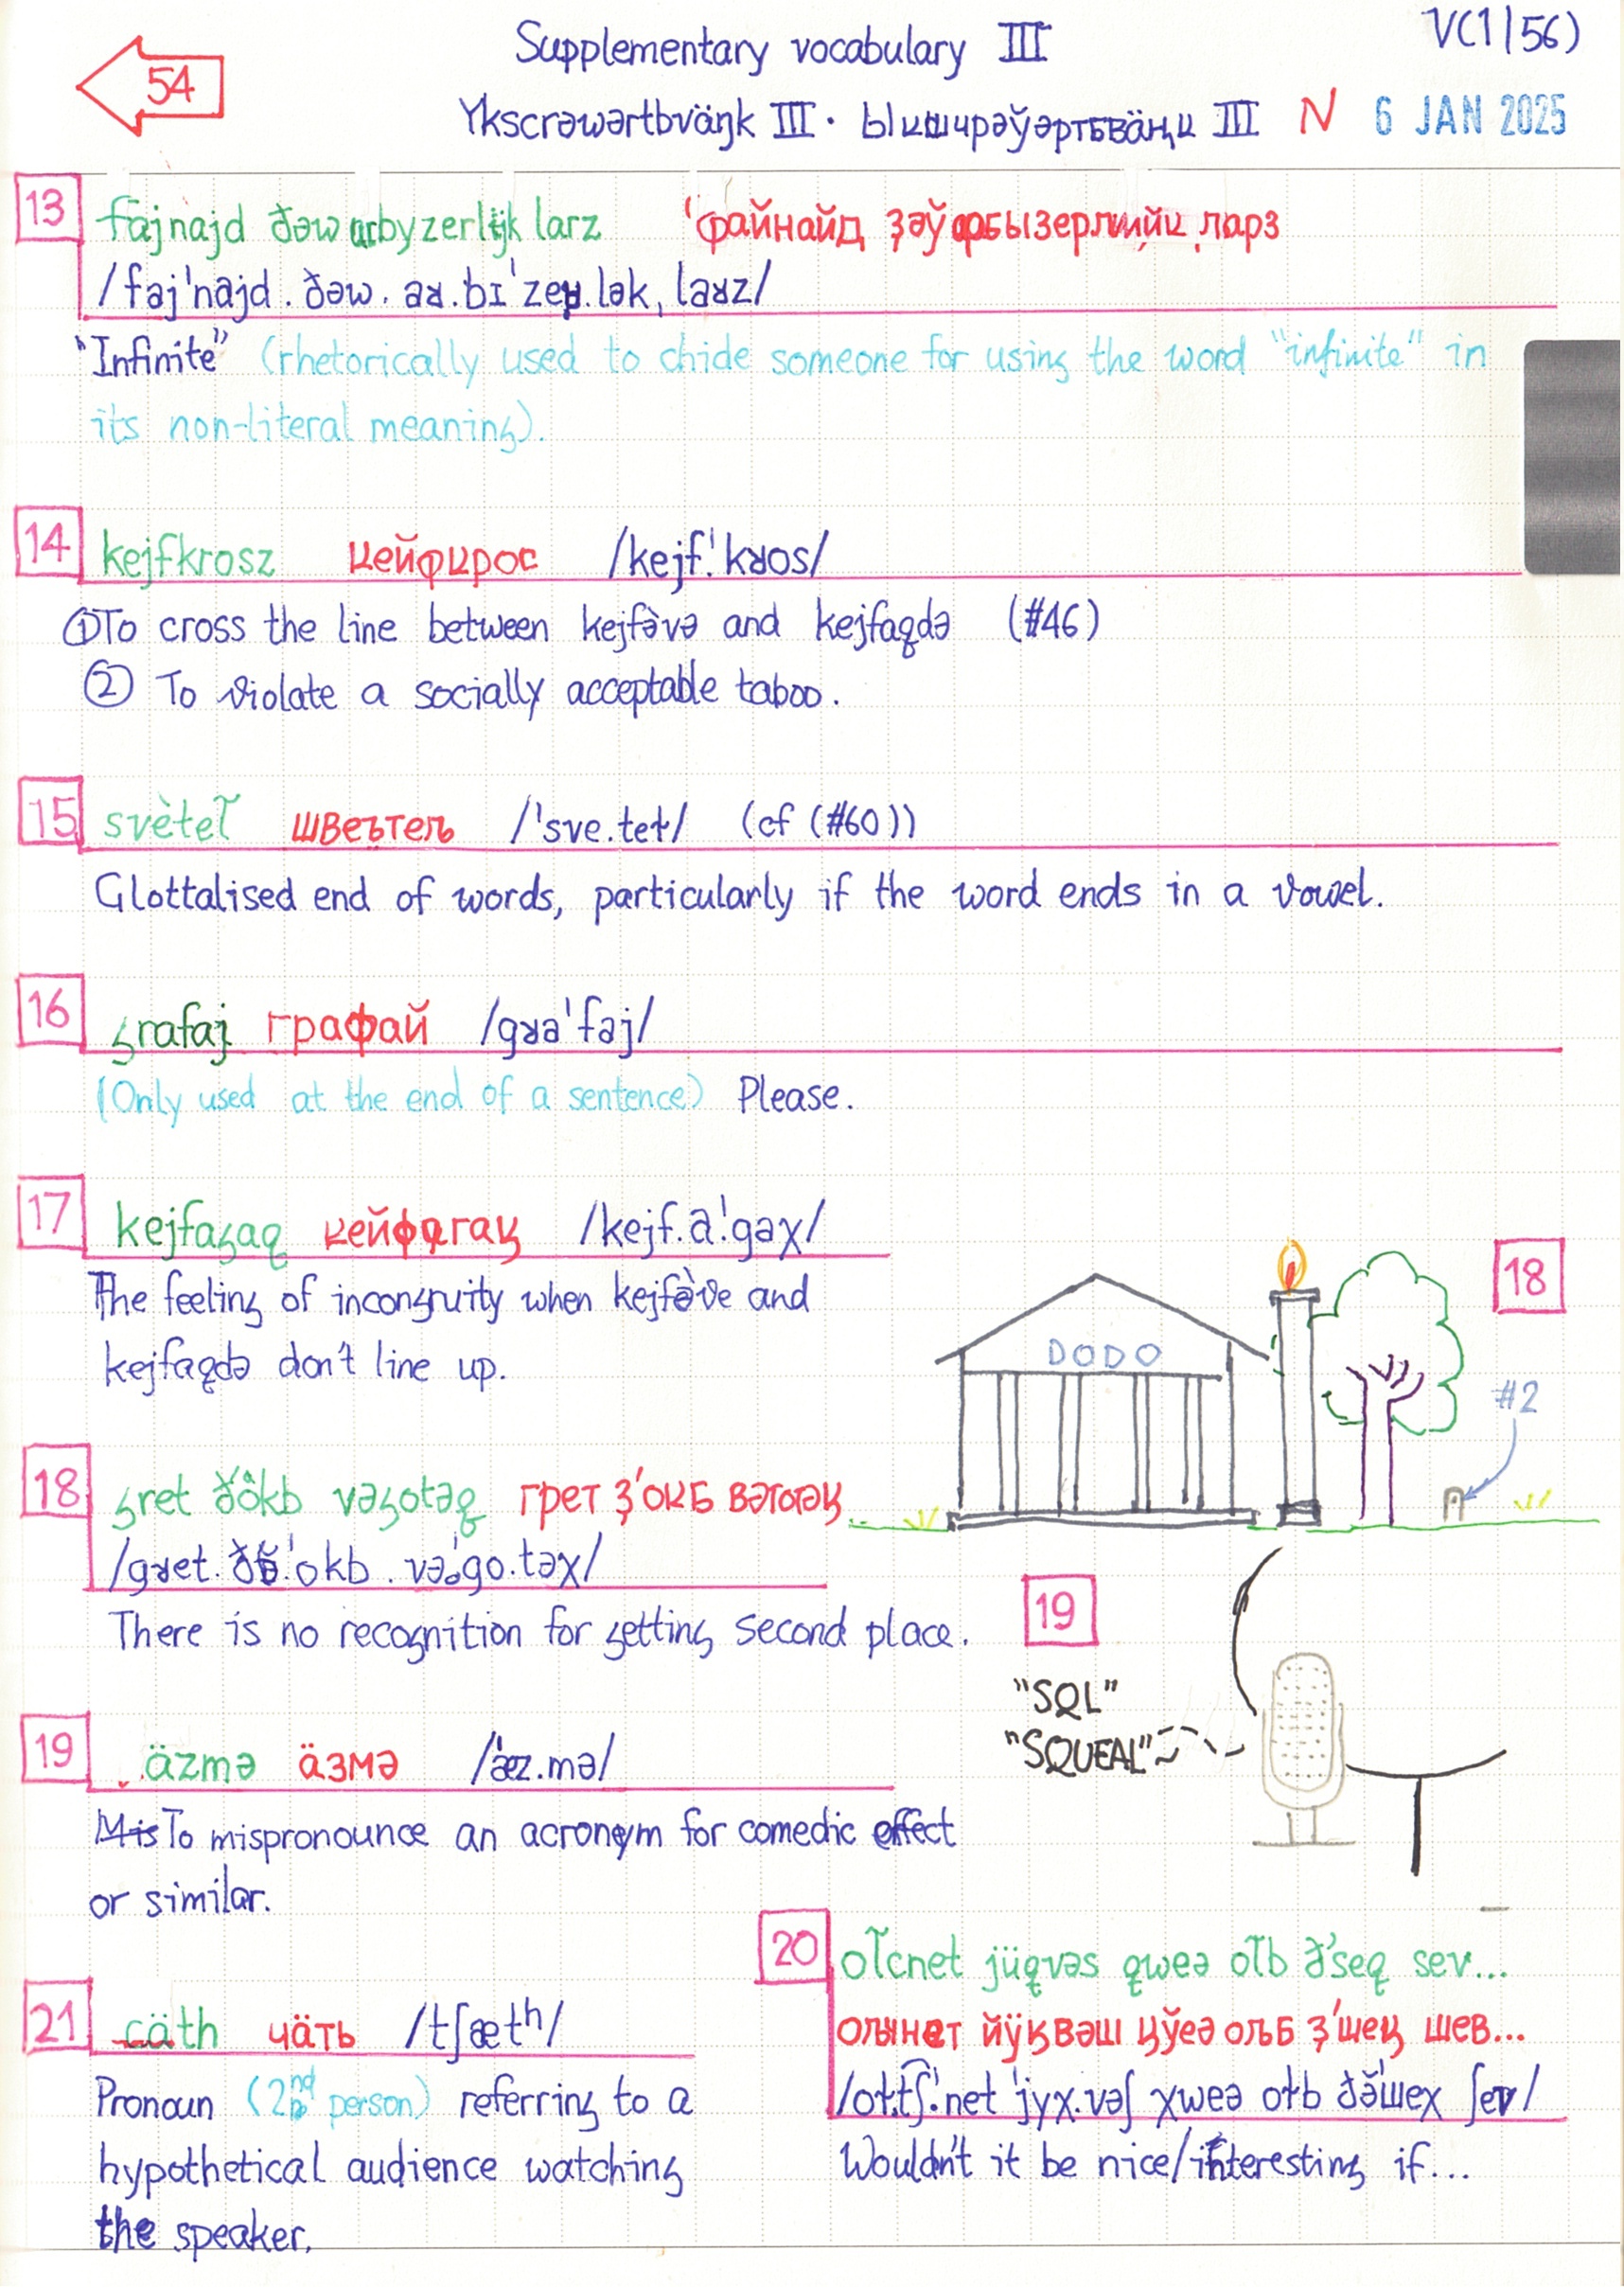 54
Supplementary vocabulary III
V(1/56)
Ykscrəwərtbväŋk III · Ыкшчрəўəртьвäңк III N 6 JAN 2025
13
fajnajd ðəw arbyzerlijk larz
/faj'najd . ðəw . aʁ.bɪ'zeʁ.lək, laʁz/
"Infinite" (rhetorically used to chide someone for using the word "infinite" in
its non-literal meaning).
14 kejfkrosz кейфкрос /kejf.'kʁos/
① To cross the line between kejfəvə and kejfaqdə (#46)
② To violate a socially acceptable taboo.
15 svètel̃ швеътељ /'sve.teɫ/ (cf (#60))
Glottalised end of words, particularly if the word ends in a vowel.
16 grafaj графай /gʁa'faj/
(Only used at the end of a sentence) Please.
17 kejfagaq кейфагаҳ /kejf.a.'gəχ/
The feeling of incongruity when kejfəve and
kejfaqdə don't line up.
18
DODO
#2
18 gret ðôkb vəgotəq грет ҙ'окб вəготəҳ
/gʁet. ðə.'okb . və.'go.təχ/
There is no recognition for getting second place.
19
"SQL"
"SQUEAL"
19 äzmə äзмə /'æz.mə/
To mispronounce an acronym for comedic effect
or similar.
20 ol̃cnet jüqvəs qweə ol̃b ð'seq sev...
ољчнет йÿҳвəш ҳўеə ољб ҙ'шеҳ шев...
/oɫ.tʃ.'net 'jyχ.vəʃ χweə oɫb ðə'ʃeχ ʃev/
Wouldn't it be nice/interesting if...
21 cäth чäть /tʃætʰ/
Pronoun (2nd person) referring to a
hypothetical audience watching
the speaker.